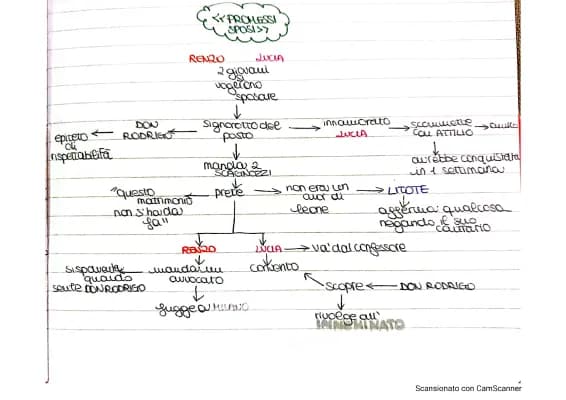 <<PROMESSI
SPOSI>>
RENZO LUCIA
2 giovani
si
vogliono
sposare
epiteto di rispettabilità
DON
RODRIGO
signorotto del
posto
innamorato
LUCIA
scommette
con ATTILIO
avrebbe conquistata
in 1 settimana
manda 2
"questo
matrimonio
non s'ha da
fa"
prete
non era un
cuor di
leone
LITOTE
afferma qualcosa
negando il suo
contrario
RENZO
LUCIA
va dal confessore
si spaventa
quando
sente DON RODRIGO
manda un
avvocato
convento
scopre
DON RODRIGO
fugge a MILANO
rivolge all'
INNOMINATO
Scansionato con CamScanner